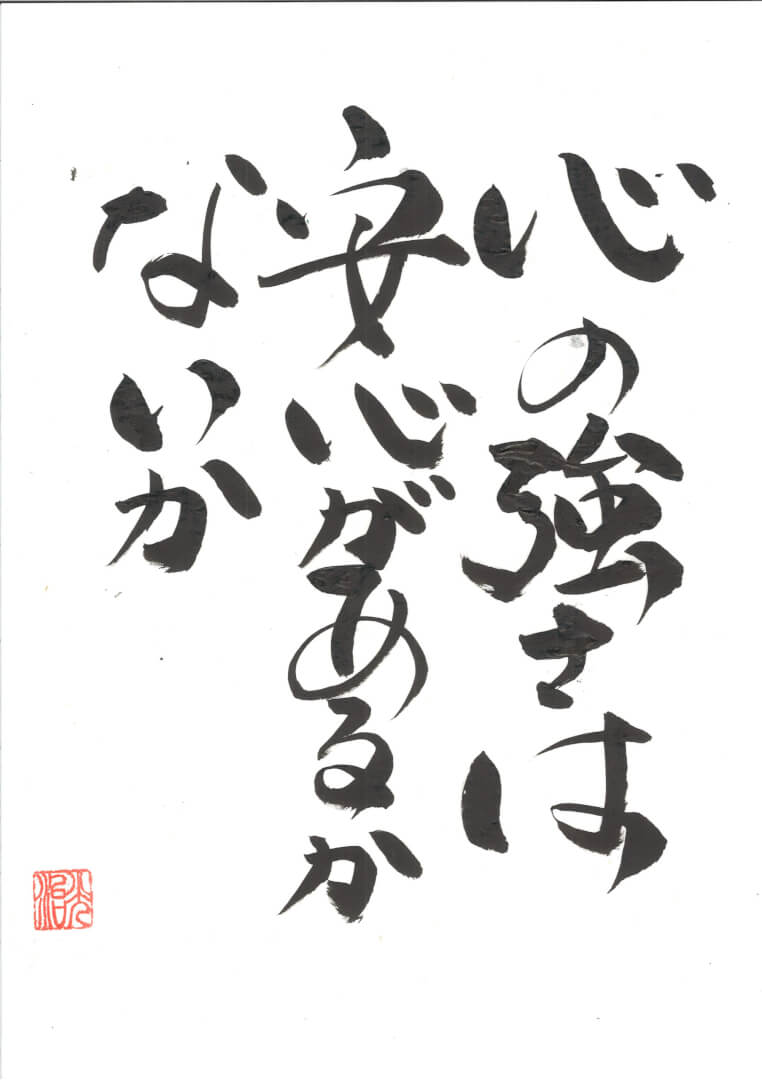 心の強さは
安心があるか
ないか